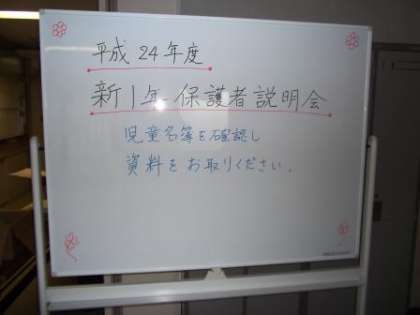 平成24年度
新1年 保護者説明会
児童名簿を確認し
資料をお取りください.